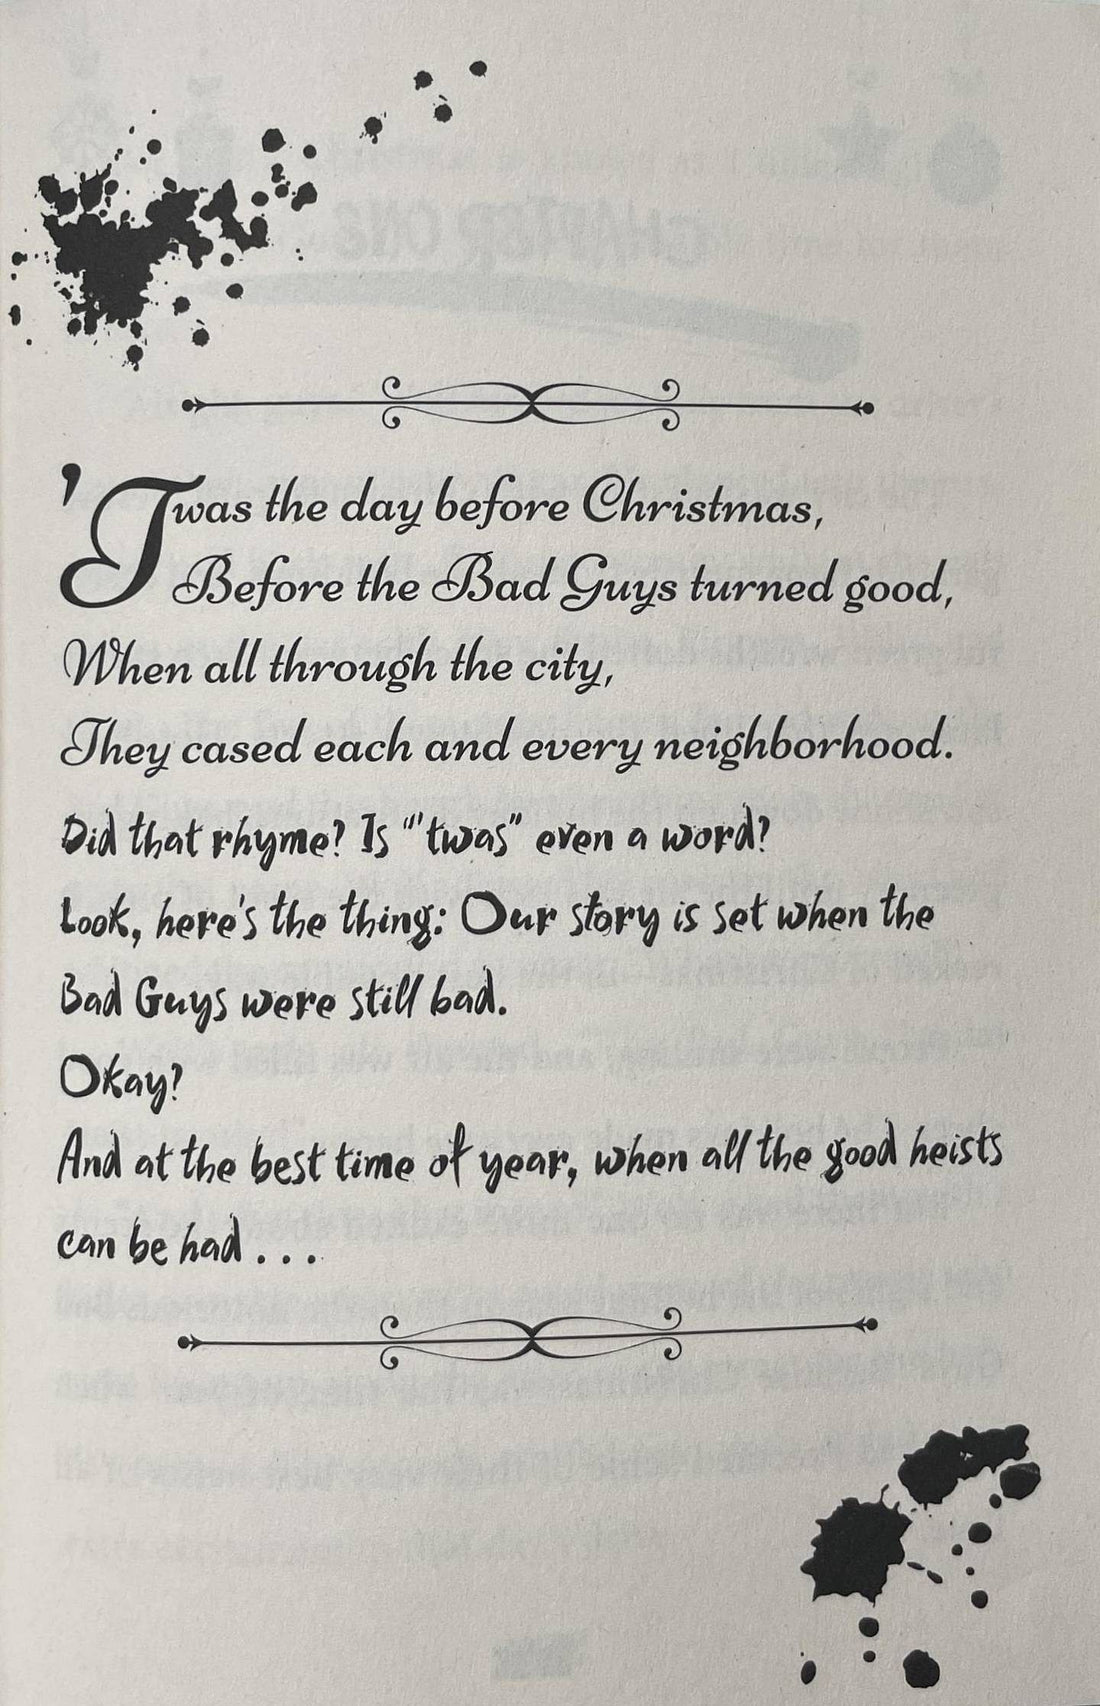 'Twas the day before Christmas,
Before the Bad Guys turned good,
When all through the city,
They cased each and every neighborhood.
Did that rhyme? Is "'twas" even a word?
Look, here's the thing: Our story is set when the
Bad Guys were still bad.
Okay?
And at the best time of year, when all the good heists
can be had . . .